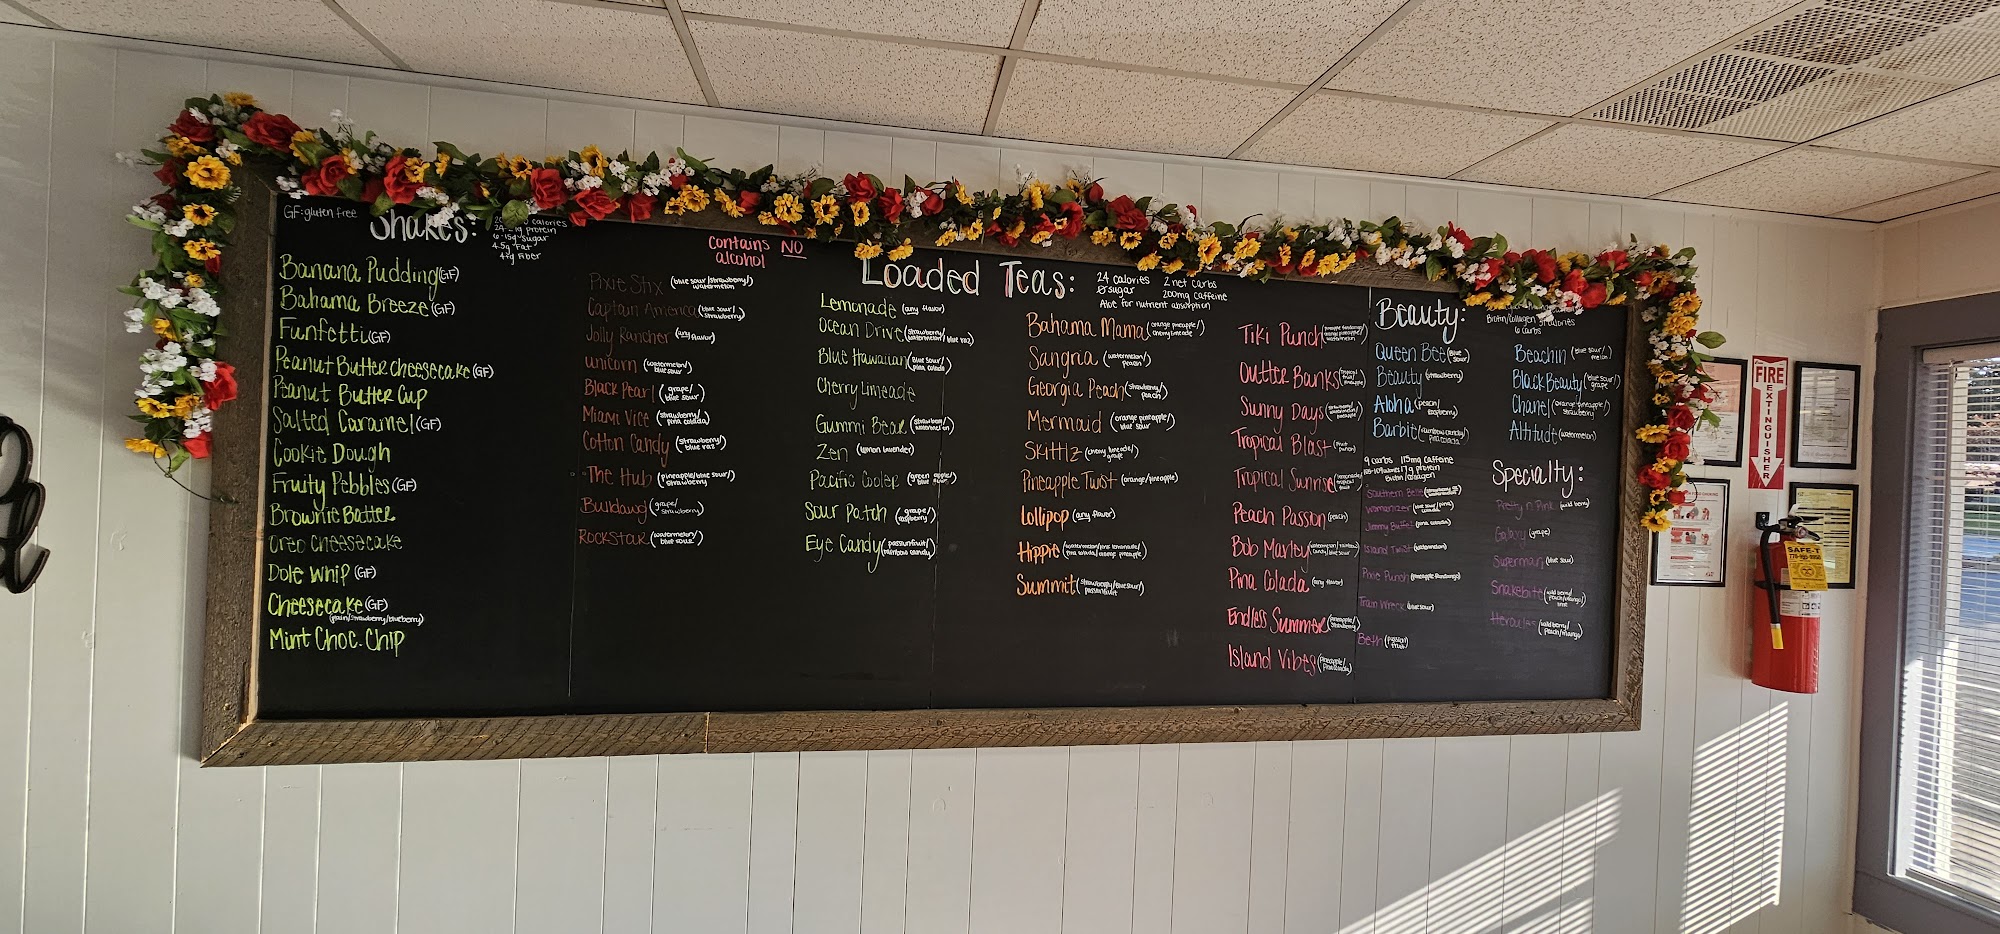 GF:gluten free
Shakes:
calories
protein
6-15g sugar
4.5g Fat
fiber
Banana Pudding (GF)
Bahama Breeze (GF)
Funfetti (GF)
Peanut Butter Cheesecake (GF)
Peanut Butter Cup
Salted Caramel (GF)
Cookie Dough
Fruity Pebbles (GF)
Brownie Batter
Oreo Cheesecake
Dole Whip (GF)
Cheesecake (GF)
(plain/strawberry/blueberry)
Mint Choc. Chip
Contains NO
alcohol
Loaded Teas:
24 calories 2 net carbs
0 sugar 200mg caffeine
Aloe for nutrient absorption
Pixie Stix (blue sour/strawberry/
watermelon)
Captain America (blue sour/
strawberry)
Jolly Rancher (any flavor)
Unicorn (watermelon/
blue sour)
Black Pearl (grape/
blue sour)
Miami Vice (strawberry/
pina colada)
Cotton Candy (strawberry/
blue raz)
The Hub (pineapple/blue sour/
strawberry)
Buildawg (grape/
strawberry)
Rockstar (watermelon/
blue sour)
Lemonade (any flavor)
Ocean Drive (strawberry/
watermelon/blue raz)
Blue Hawaiian (blue sour/
pina colada)
Cherry Limeade
Gummi Bear (strawberry/
watermelon)
Zen (lemon lavender)
Pacific Cooler (green apple/
Sour Patch (grape/
raspberry)
Eye Candy (passionfruit/
rainbow candy)
Bahama Mama (orange pineapple/
cherry limeade)
Sangria (watermelon/
peach)
Georgia Peach (strawberry/
peach)
Mermaid (orange pineapple/
blue sour)
Skittlz (cherry limeade/
grape)
Pineapple Twist (orange/pineapple)
Lollipop (any flavor)
Hippie (watermelon/pink lemonade/
pina colada/orange pineapple)
Summit (strawberry/blue sour/
passionfruit)
Tiki Punch
watermelon)
Outter Banks (tropical
fruit/
pineapple)
Sunny Days
Tropical Blast
Tropical Sunrise
Peach Passion (peach)
Bob Marley (watermelon/rainbow
candy/blue sour)
Pina Colada (any flavor)
Endless Summer (pineapple/
strawberry)
Island Vibes (pineapple/
pina colada)
Beauty:
Biotin/Collagen calories
6 carbs
Queen Bee (blue
sour)
Beauty (strawberry)
Aloha (peach/
raspberry)
Barbie (rainbow candy/
pina colada)
Beachin (blue sour/
melon)
Black Beauty (blue sour/
grape)
Chanel (orange pineapple/
strawberry)
Altitude (watermelon)
Specialty:
9 carbs 115mg caffeine
17g protein
Biotin/collagen
Southern Belle
Womanizer
Jimmy Buffet (pina colada)
Island Twist (watermelon)
Pixie Punch (pineapple flamingo)
Train Wreck (blue sour)
Beth (passion
fruit)
Pretty n Pink (wild berry)
Galaxy (grape)
Superman (blue sour)
Snakebite (wild berry/
peach/mango/
Hercules (wild berry/
peach/mango)
FIRE
EXTINGUISHER
SAFE-T